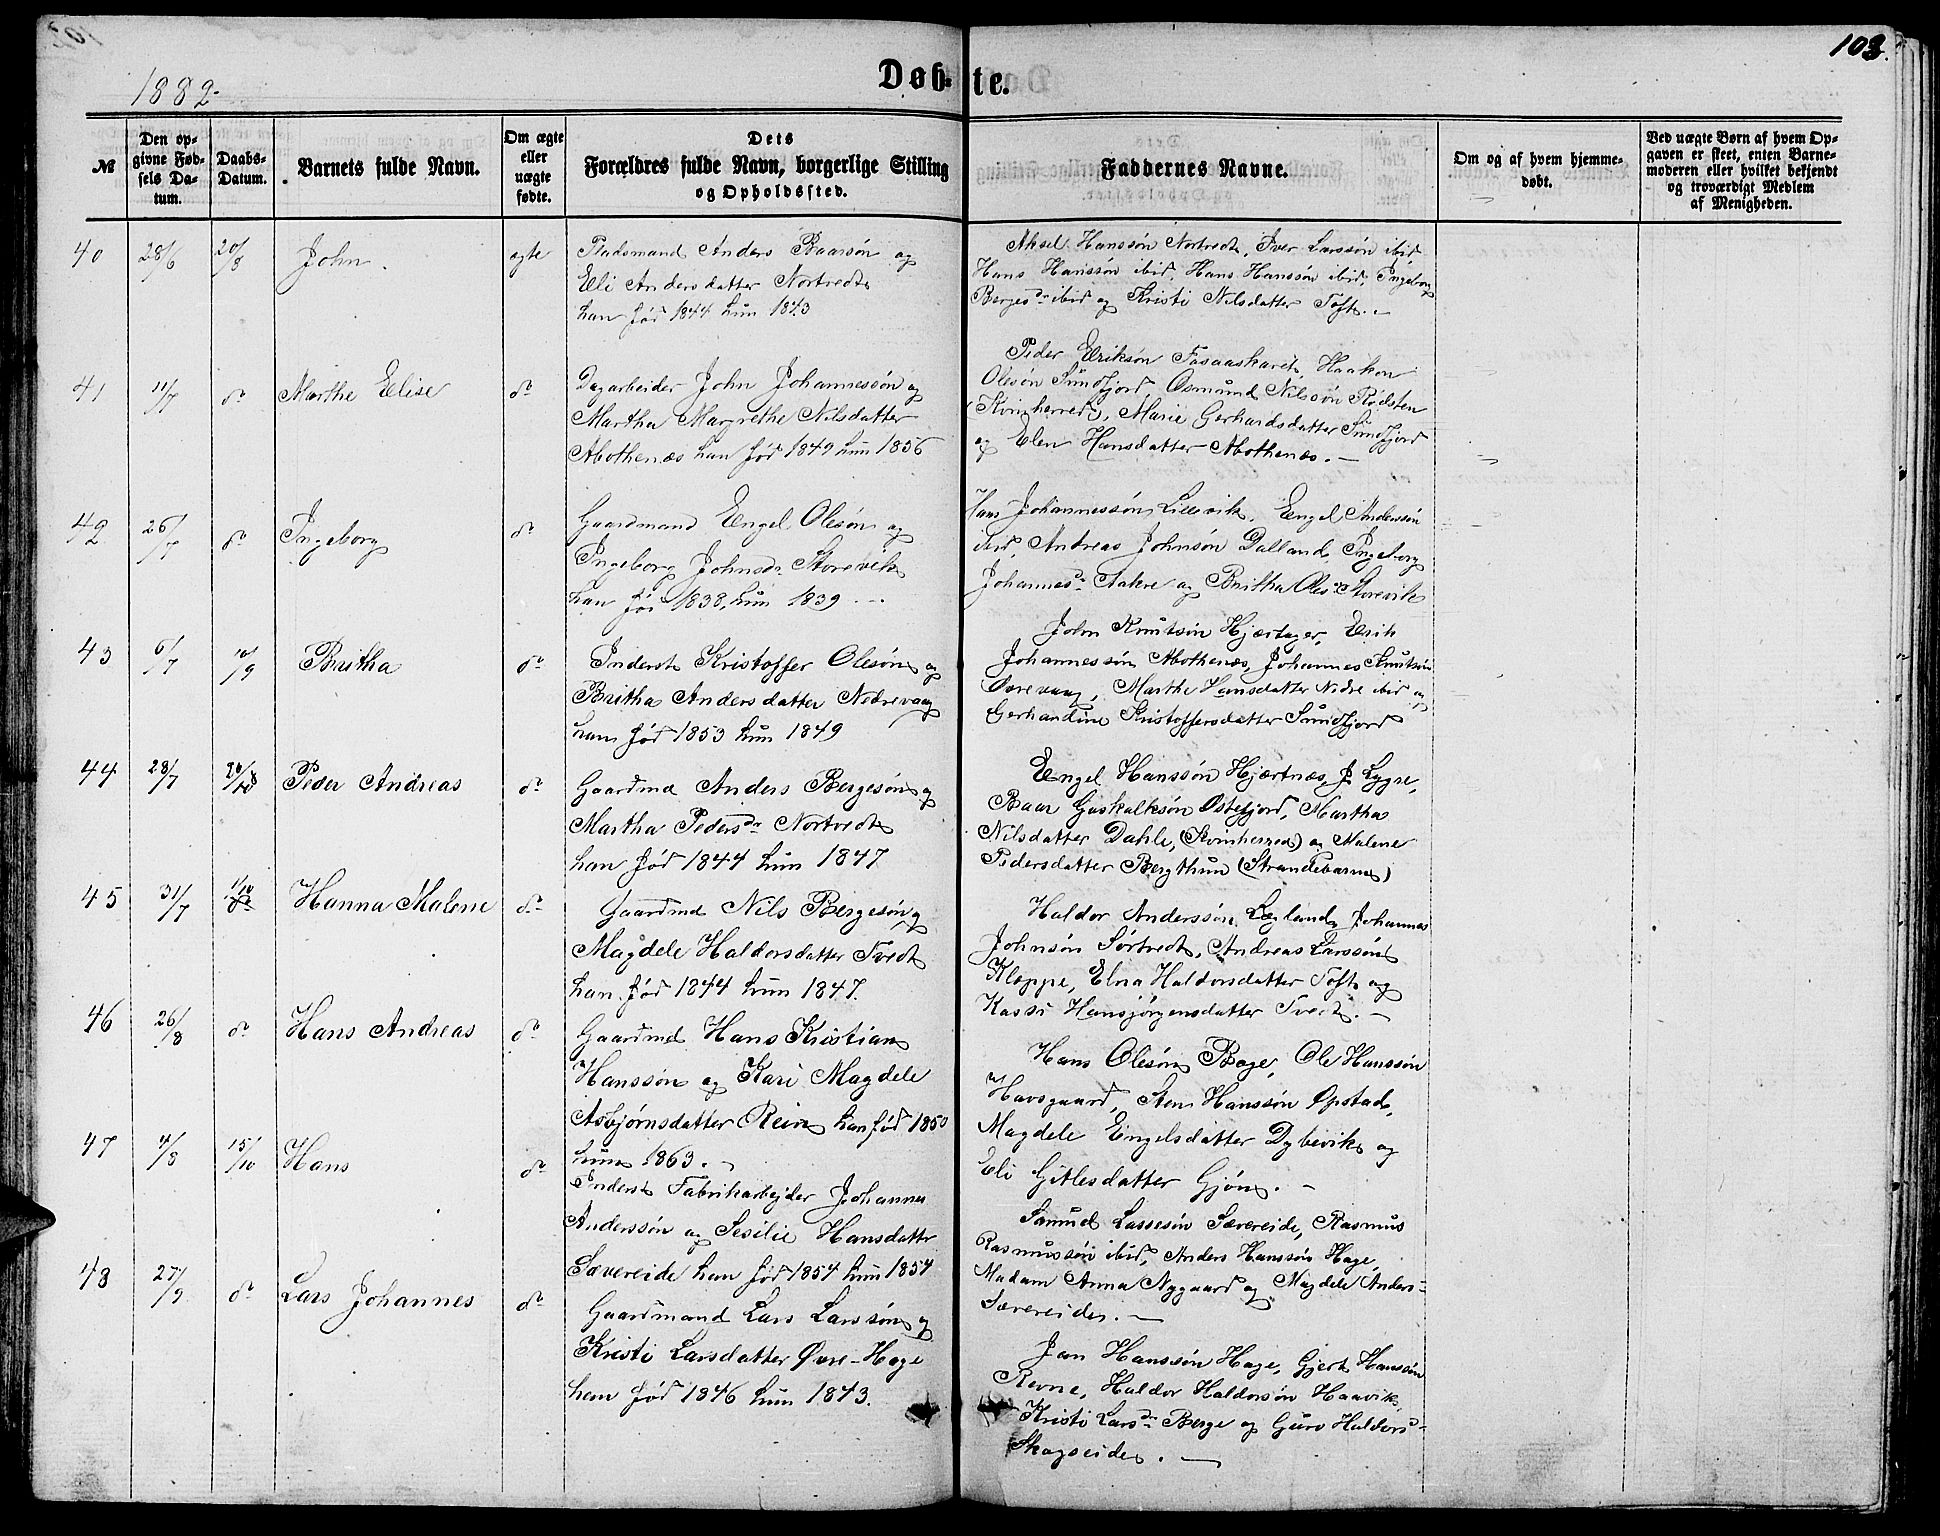 103.
1882.
Døb-te.
№
Den opgivne Fødsels Datum.
Daabs-Datum.
Barnets fulde Navn.
Om ægte eller uægte fødte.
Dets Forældres fulde Navn, borgerlige Stilling og Opholdssted.
Faddernes Navne.
Om og af hvem hjemmedøbt.
Ved uægte Børn af hvem Opgaven er skeet, enten Barnemoderen eller hvilket bekjendt og troværdigt Medlem af Menigheden.
40 28/6 20/8 John. ægte
Pladsmand Anders Baarsøn og
Eli Andersdatter Nortvedt
han fød 1844 hun 1843
Aksel Hanssøn Nortvedt, Iver Larssøn ibid
Hans Hanssøn ibid, Hans Hanssøn ibid, Ingeborg
Bergesdr ibid og Kristi Nilsdatter Toft. -
41 11/7 do Marthe Elise do
Dagarbeider John Johannessøn og
Martha Margrethe Nilsdatter
Abothenæs han fød 1849 hun 1856
Peder Eriksøn Fasaaskaret, Haakon
Olesøn Sundfjord, Osmund Nilssøn Rødsten
(Kvinherred), Marie Gerhardsdatter Sundfjord
og Elen Hansdatter Abothenæs. -
42 26/7 do Ingeborg do
Gaardmand Engel Olesøn og
Ingeborg Johnsdr Storevik
han fød 1838, hun 1839 -
Hans Johannessøn Lillevik, Engel Anderssøn
ibid, Andreas Johnsøn Dalland, Ingeborg
Johannesdr Aakre og Britha Olesdr Storevik
43 6/7 10/9 Britha do
Inderst Kristoffer Olesøn og
Britha Andersdatter Nedrevaag
han fød 1853 hun 1849
John Knutsøn Hjærtager, Erik
Johannessøn Abothenæs, Johannes Knutsøn
Øvrevaag, Marthe Hansdatter Nedre ibid og
Gerhardine Kristoffersdatter Sundfjord
44 28/7 Peder Andreas do
Gaardmd Anders Bergesøn og
Martha Pedersdr Nortvedt
han fød 1844 hun 1847
Engel Hanssøn Hjærtnæs, J Lygre,
Baar Guskalksøn Østefjord, Martha
Nilsdatter Dahle, (Kvinherred) og Malene
Pedersdatter Bergthun (Strandebarm)
45 31/7 1/10 Hanna Malene do
Gaardmd Nils Bergesøn og
Magdele Haldorsdatter Tvedt
han fød 1844 hun 1847.
Haldor Anderssøn Lægland, Johannes
Johnsøn Sørtvedt, Andreas Larssøn
Kloppe, Elna Haldorsdatter Toft og
Kassi Hansjørgensdatter Tvedt. -
46 26/8 do Hans Andreas do
Gaardmd Hans Kristian
Hanssøn og Kari Magdele
Asbjørnsdatter Rein han fød 1850
hun 1863. -
Hans Olesøn Boge, Ole Hanssøn
Havsgaard, Sten Hanssøn Opstad,
Magdele Engelsdatter Dybevik og
Eli Gitlesdatter Gjøn. -
47 4/8 15/10 Hans do
Inderst Fabrikarbejder Johannes
Anderssøn og Sesilie Hansdatter
Sævereide han fød 1854 hun 1854
Samud Lassesøn Sævereide, Rasmus
Rasmussøn ibid, Anders Hanssøn Hage,
Madam Anna Nygaard og Magdele Anders-
Sævereide. -
48 27/9 do Lars Johannes do
Gaardmand Lars Larssøn og
Kristi Larsdatter Øvre-Hage
han fød 1846 hun 1843.
Jan Hanssøn Hage, Gjert Hanssøn
Revne, Haldor Haldorsøn Haavik,
Kristi Larsdr Berge og Guro Haldorsd-
Skogseide. -